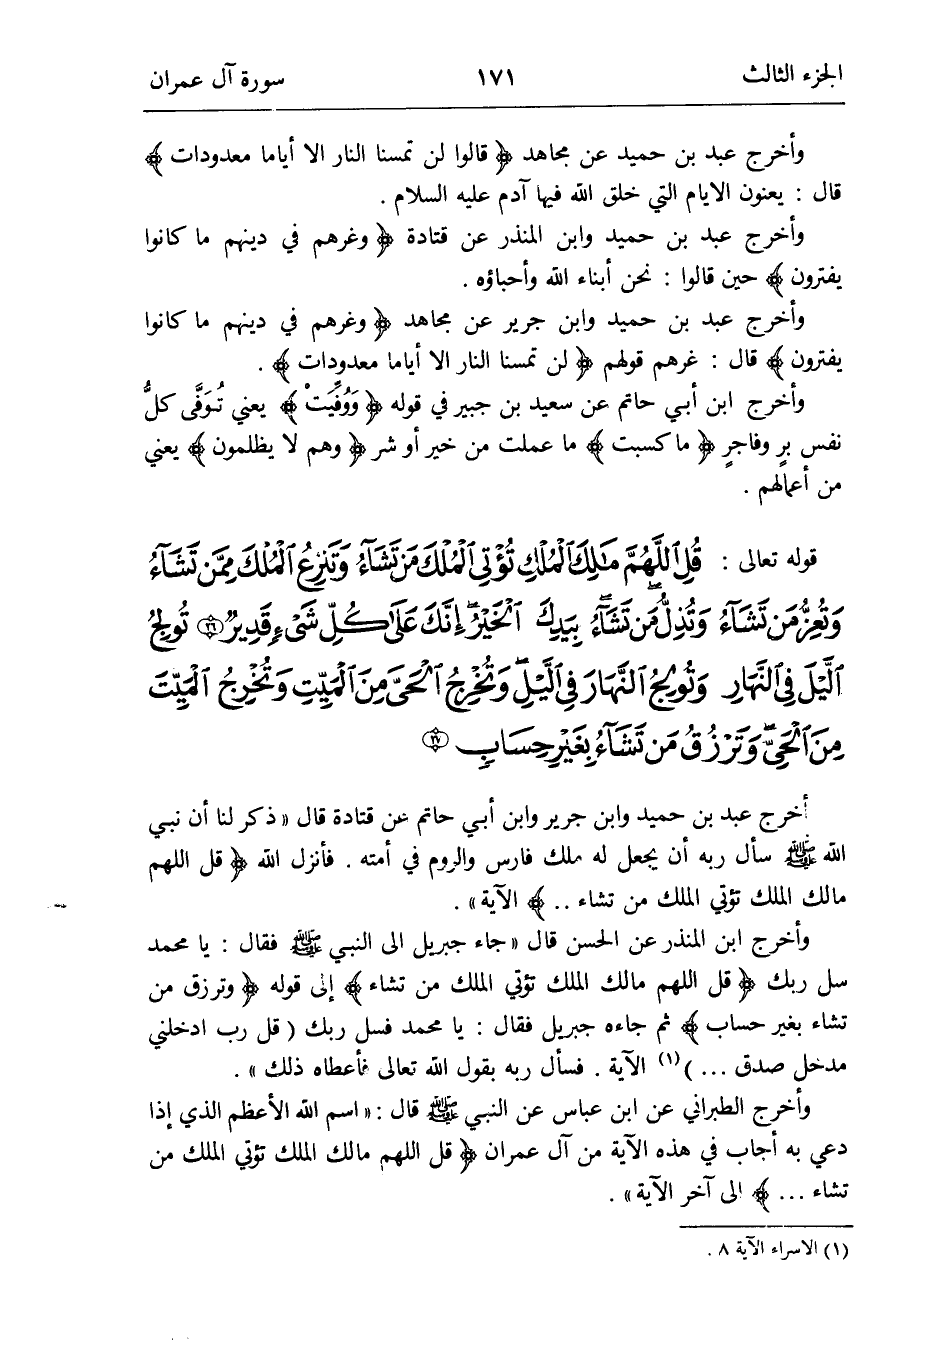 الجزء الثالث ١٧١ سورة آل عمران
وأخرج عبد بن حميد عن مجاهد ﴿ قالوا لن تمسنا النار الا أياما معدودات ﴾
قال : يعنون الايام التي خلق الله فيها آدم عليه السلام .
وأخرج عبد بن حميد وابن المنذر عن قتادة ﴿ وغرهم في دينهم ما كانوا
يفترون ﴾ حين قالوا : نحن أبناء الله وأحباؤه .
وأخرج عبد بن حميد وابن جرير عن مجاهد ﴿ وغرهم في دينهم ما كانوا
يفترون ﴾ قال : غرهم قولهم ﴿ لن تمسنا النار الا أياما معدودات ﴾ .
وأخرج ابن أبي حاتم عن سعيد بن جبير في قوله ﴿ وَوُفِّيَتْ ﴾ يعني تُوَفَّى كلُّ
نفس برٍ وفاجرٍ ﴿ ما كسبت ﴾ ما عملت من خير أو شر ﴿ وهم لا يظلمون ﴾ يعني
من أعمالهم .
قوله تعالى : قُلِ ٱللَّهُمَّ مَٰلِكَ ٱلْمُلْكِ تُؤْتِي ٱلْمُلْكَ مَن تَشَآءُ وَتَنزِعُ ٱلْمُلْكَ مِمَّن تَشَآءُ
وَتُعِزُّ مَن تَشَآءُ وَتُذِلُّ مَن تَشَآءُ ۖ بِيَدِكَ ٱلْخَيْرُ ۖ إِنَّكَ عَلَىٰ كُلِّ شَىْءٍ قَدِيرٌ ﴿٢٦﴾ تُولِجُ
ٱلَّيْلَ فِي ٱلنَّهَارِ وَتُولِجُ ٱلنَّهَارَ فِي ٱلَّيْلِ ۖ وَتُخْرِجُ ٱلْحَيَّ مِنَ ٱلْمَيِّتِ وَتُخْرِجُ ٱلْمَيِّتَ
مِنَ ٱلْحَيِّ ۖ وَتَرْزُقُ مَن تَشَآءُ بِغَيْرِ حِسَابٍ ﴿٢٧﴾
أخرج عبد بن حميد وابن جرير وابن أبي حاتم عن قتادة قال « ذكر لنا أن نبي
الله ﷺ سأل ربه أن يجعل له ملك فارس والروم في أمته . فأنزل الله ﴿ قل اللهم
مالك الملك تؤتي الملك من تشاء .. ﴾ الآية » .
وأخرج ابن المنذر عن الحسن قال « جاء جبريل الى النبي ﷺ فقال : يا محمد
سل ربك ﴿ قل اللهم مالك الملك تؤتي الملك من تشاء ﴾ إلى قوله ﴿ وترزق من
تشاء بغير حساب ﴾ ثم جاءه جبريل فقال : يا محمد فسل ربك ( قل رب ادخلني
مدخل صدق ... ) (١) الآية . فسأل ربه بقول الله تعالى فأعطاه ذلك » .
وأخرج الطبراني عن ابن عباس عن النبي ﷺ قال : « اسم الله الأعظم الذي إذا
دعي به أجاب في هذه الآية من آل عمران ﴿ قل اللهم مالك الملك تؤتي الملك من
تشاء ... ﴾ الى آخر الآية » .
(١) الاسراء الآية ٨ .